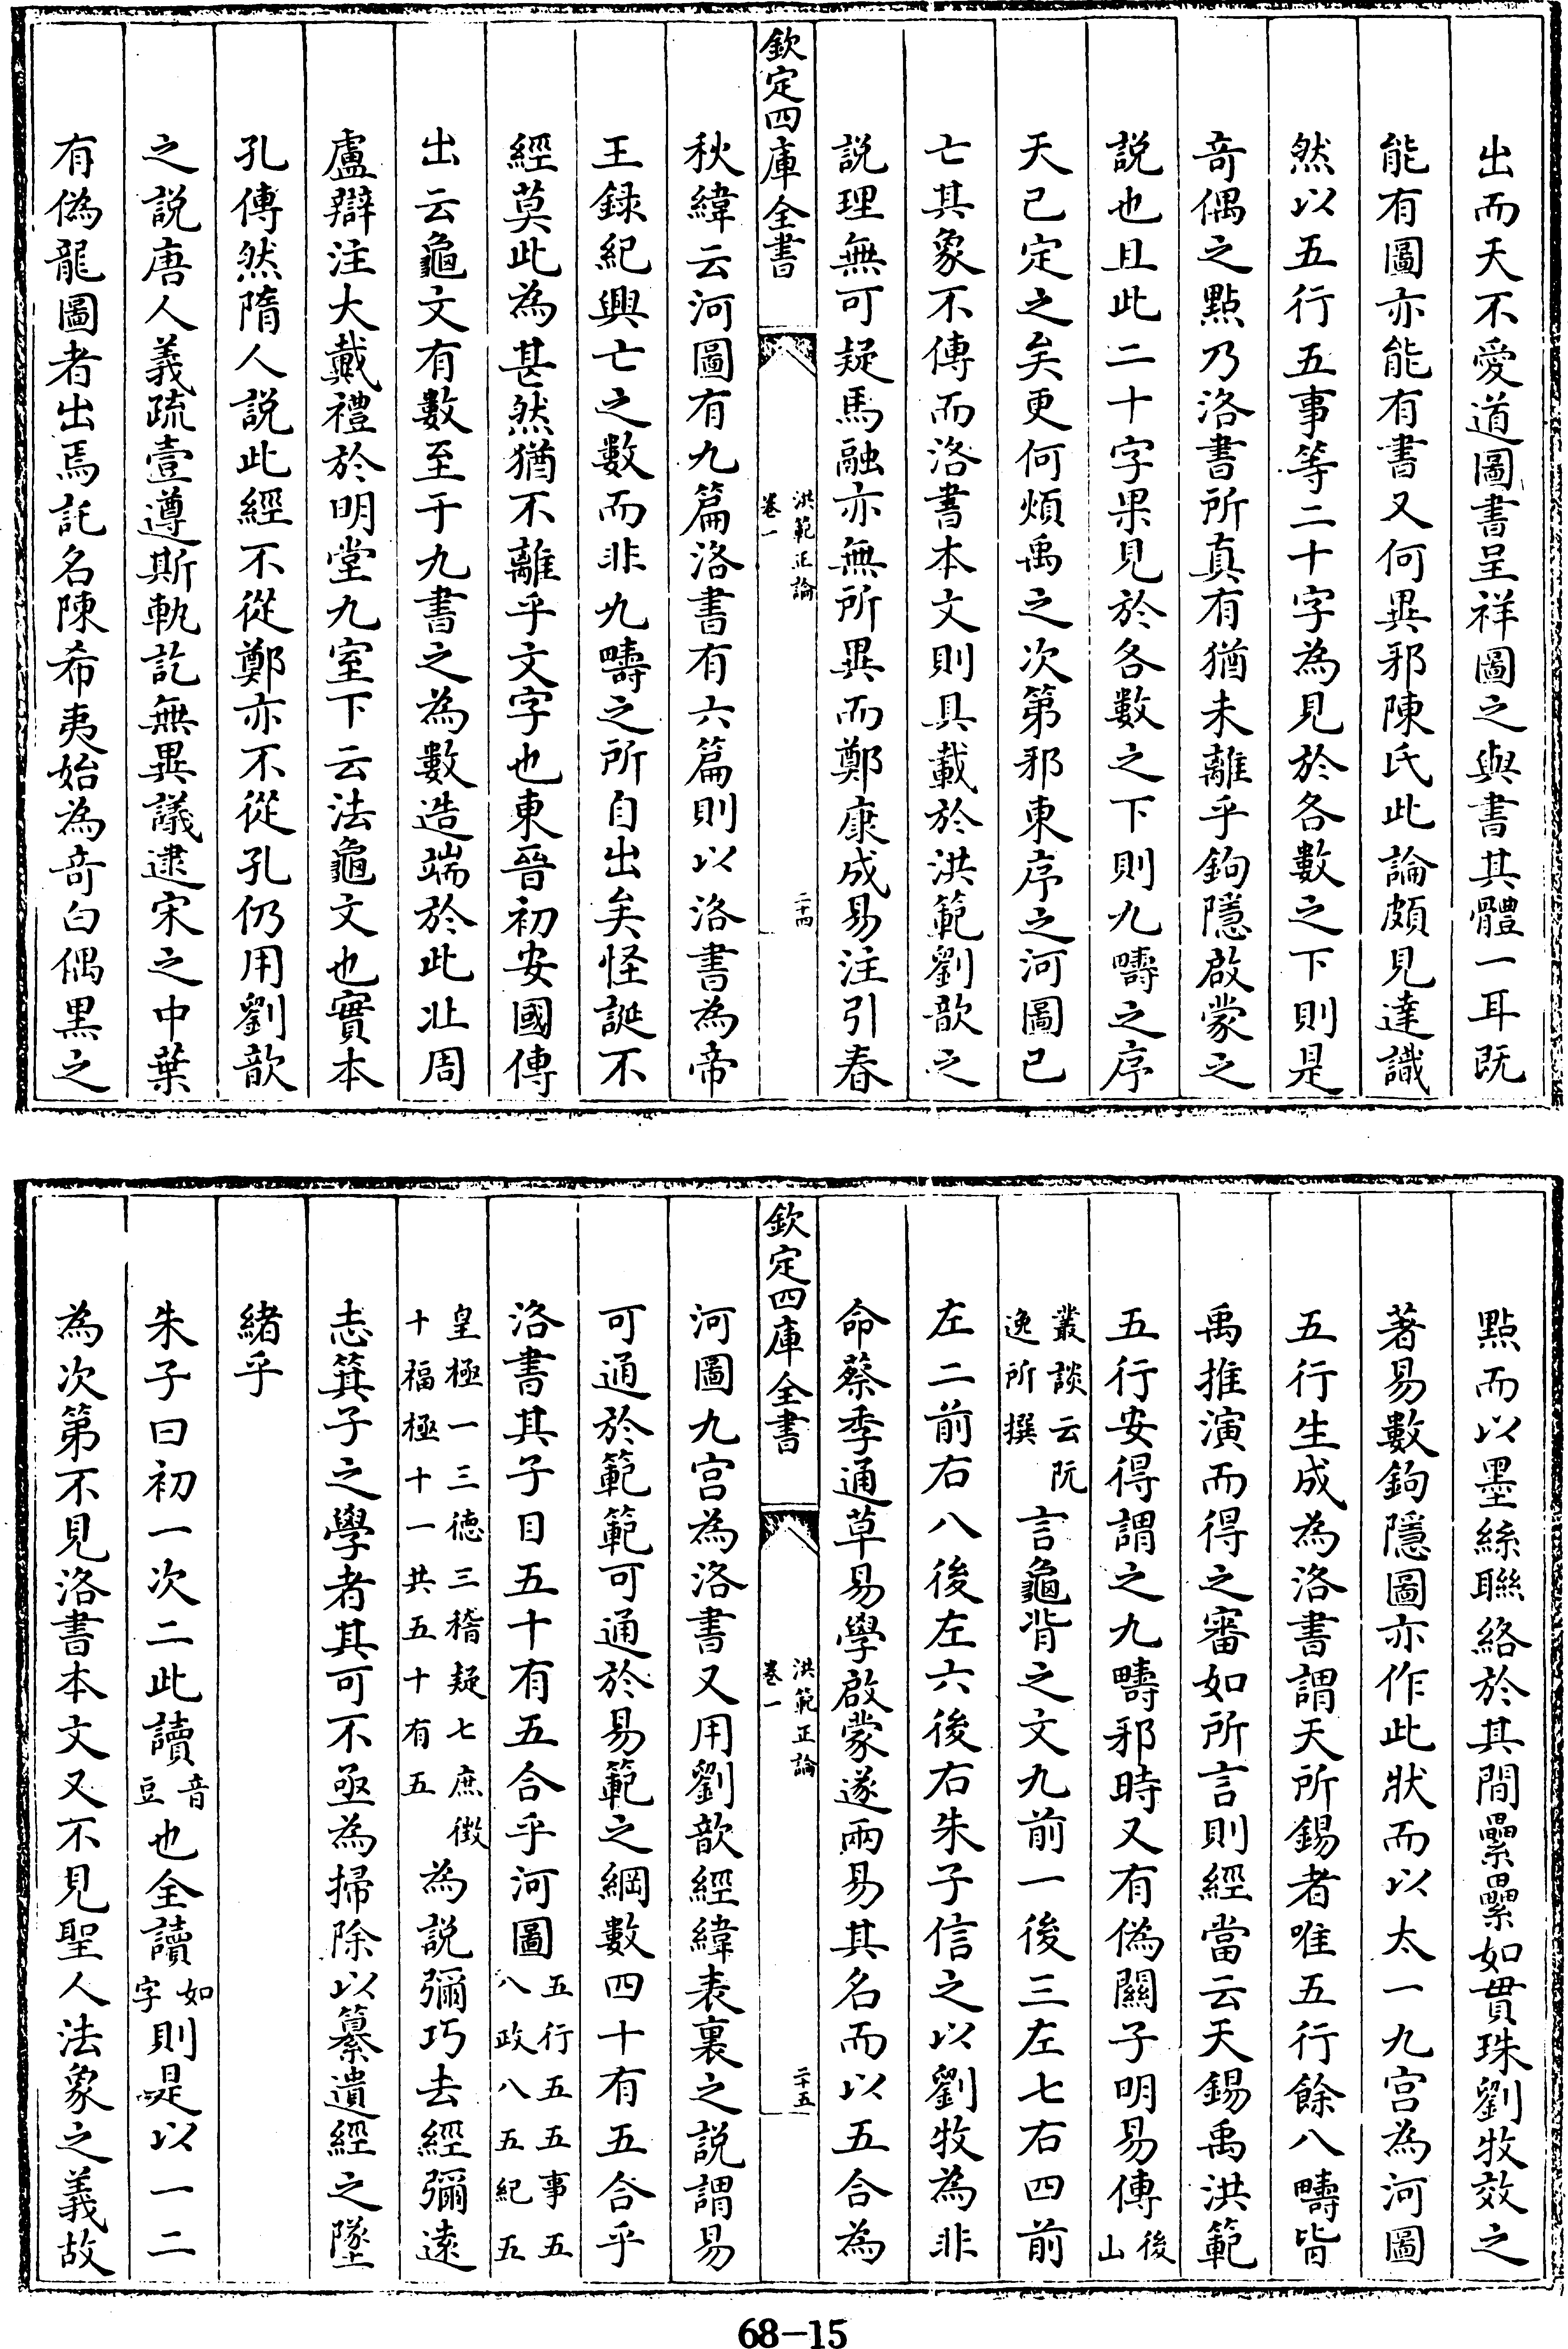 出而天不愛道圖書呈祥圖之與書其體一耳既
能有圖亦能有書又何異邪陳氏此論頗見達識
然以五行五事等二十字為見於各數之下則是
奇偶之點乃洛書所真有猶未離乎鉤隱啟蒙之
説也且此二十字果見於各數之下則九疇之序
天已定之矣更何煩禹之次第邪東序之河圖已
亡其象不傳而洛書本文則具載於洪範劉歆之
説理無可疑馬融亦無所異而鄭康成易注引春
欽定四庫全書
洪範正論
卷一
二十四
秋緯云河圖有九篇洛書有六篇則以洛書為帝
王録紀興亡之數而非九疇之所自出矣怪誕不
經莫此為甚然猶不離乎文字也東晉初安國傳
出云龜文有數至于九書之為數造端於此北周
盧辯注大戴禮於明堂九室下云法龜文也實本
孔傳然隋人説此經不從鄭亦不從孔仍用劉歆
之説唐人義疏壹遵斯軌訖無異議逮宋之中葉
有偽龍圖者出焉託名陳希夷始為奇白偶黑之
點而以墨絲聯絡於其間纍纍如貫珠劉牧效之
著易數鉤隱圖亦作此狀而以太一九宫為河圖
五行生成為洛書謂天所錫者唯五行餘八疇皆
禹推演而得之審如所言則經當云天錫禹洪範
五行安得謂之九疇邪時又有偽關子明易傳後山
叢談云阮逸所撰言龜背之文九前一後三左七右四前
左二前右八後左六後右朱子信之以劉牧為非
命蔡季通草易學啟蒙遂兩易其名而以五合為
欽定四庫全書
洪範正論
卷一
二十五
河圖九宫為洛書又用劉歆經緯表裏之説謂易
可通於範範可通於易範之綱數四十有五合乎
洛書其子目五十有五合乎河圖五行五五事五八政八五紀五
皇極一三徳三稽疑七庶徴十福極十一共五十有五為説彌巧去經彌遠
志箕子之學者其可不亟為掃除以纂遺經之墜
緒乎
朱子曰初一次二此讀音豆也全讀如字則是以一二
為次第不見洛書本文又不見聖人法象之義故
68-15